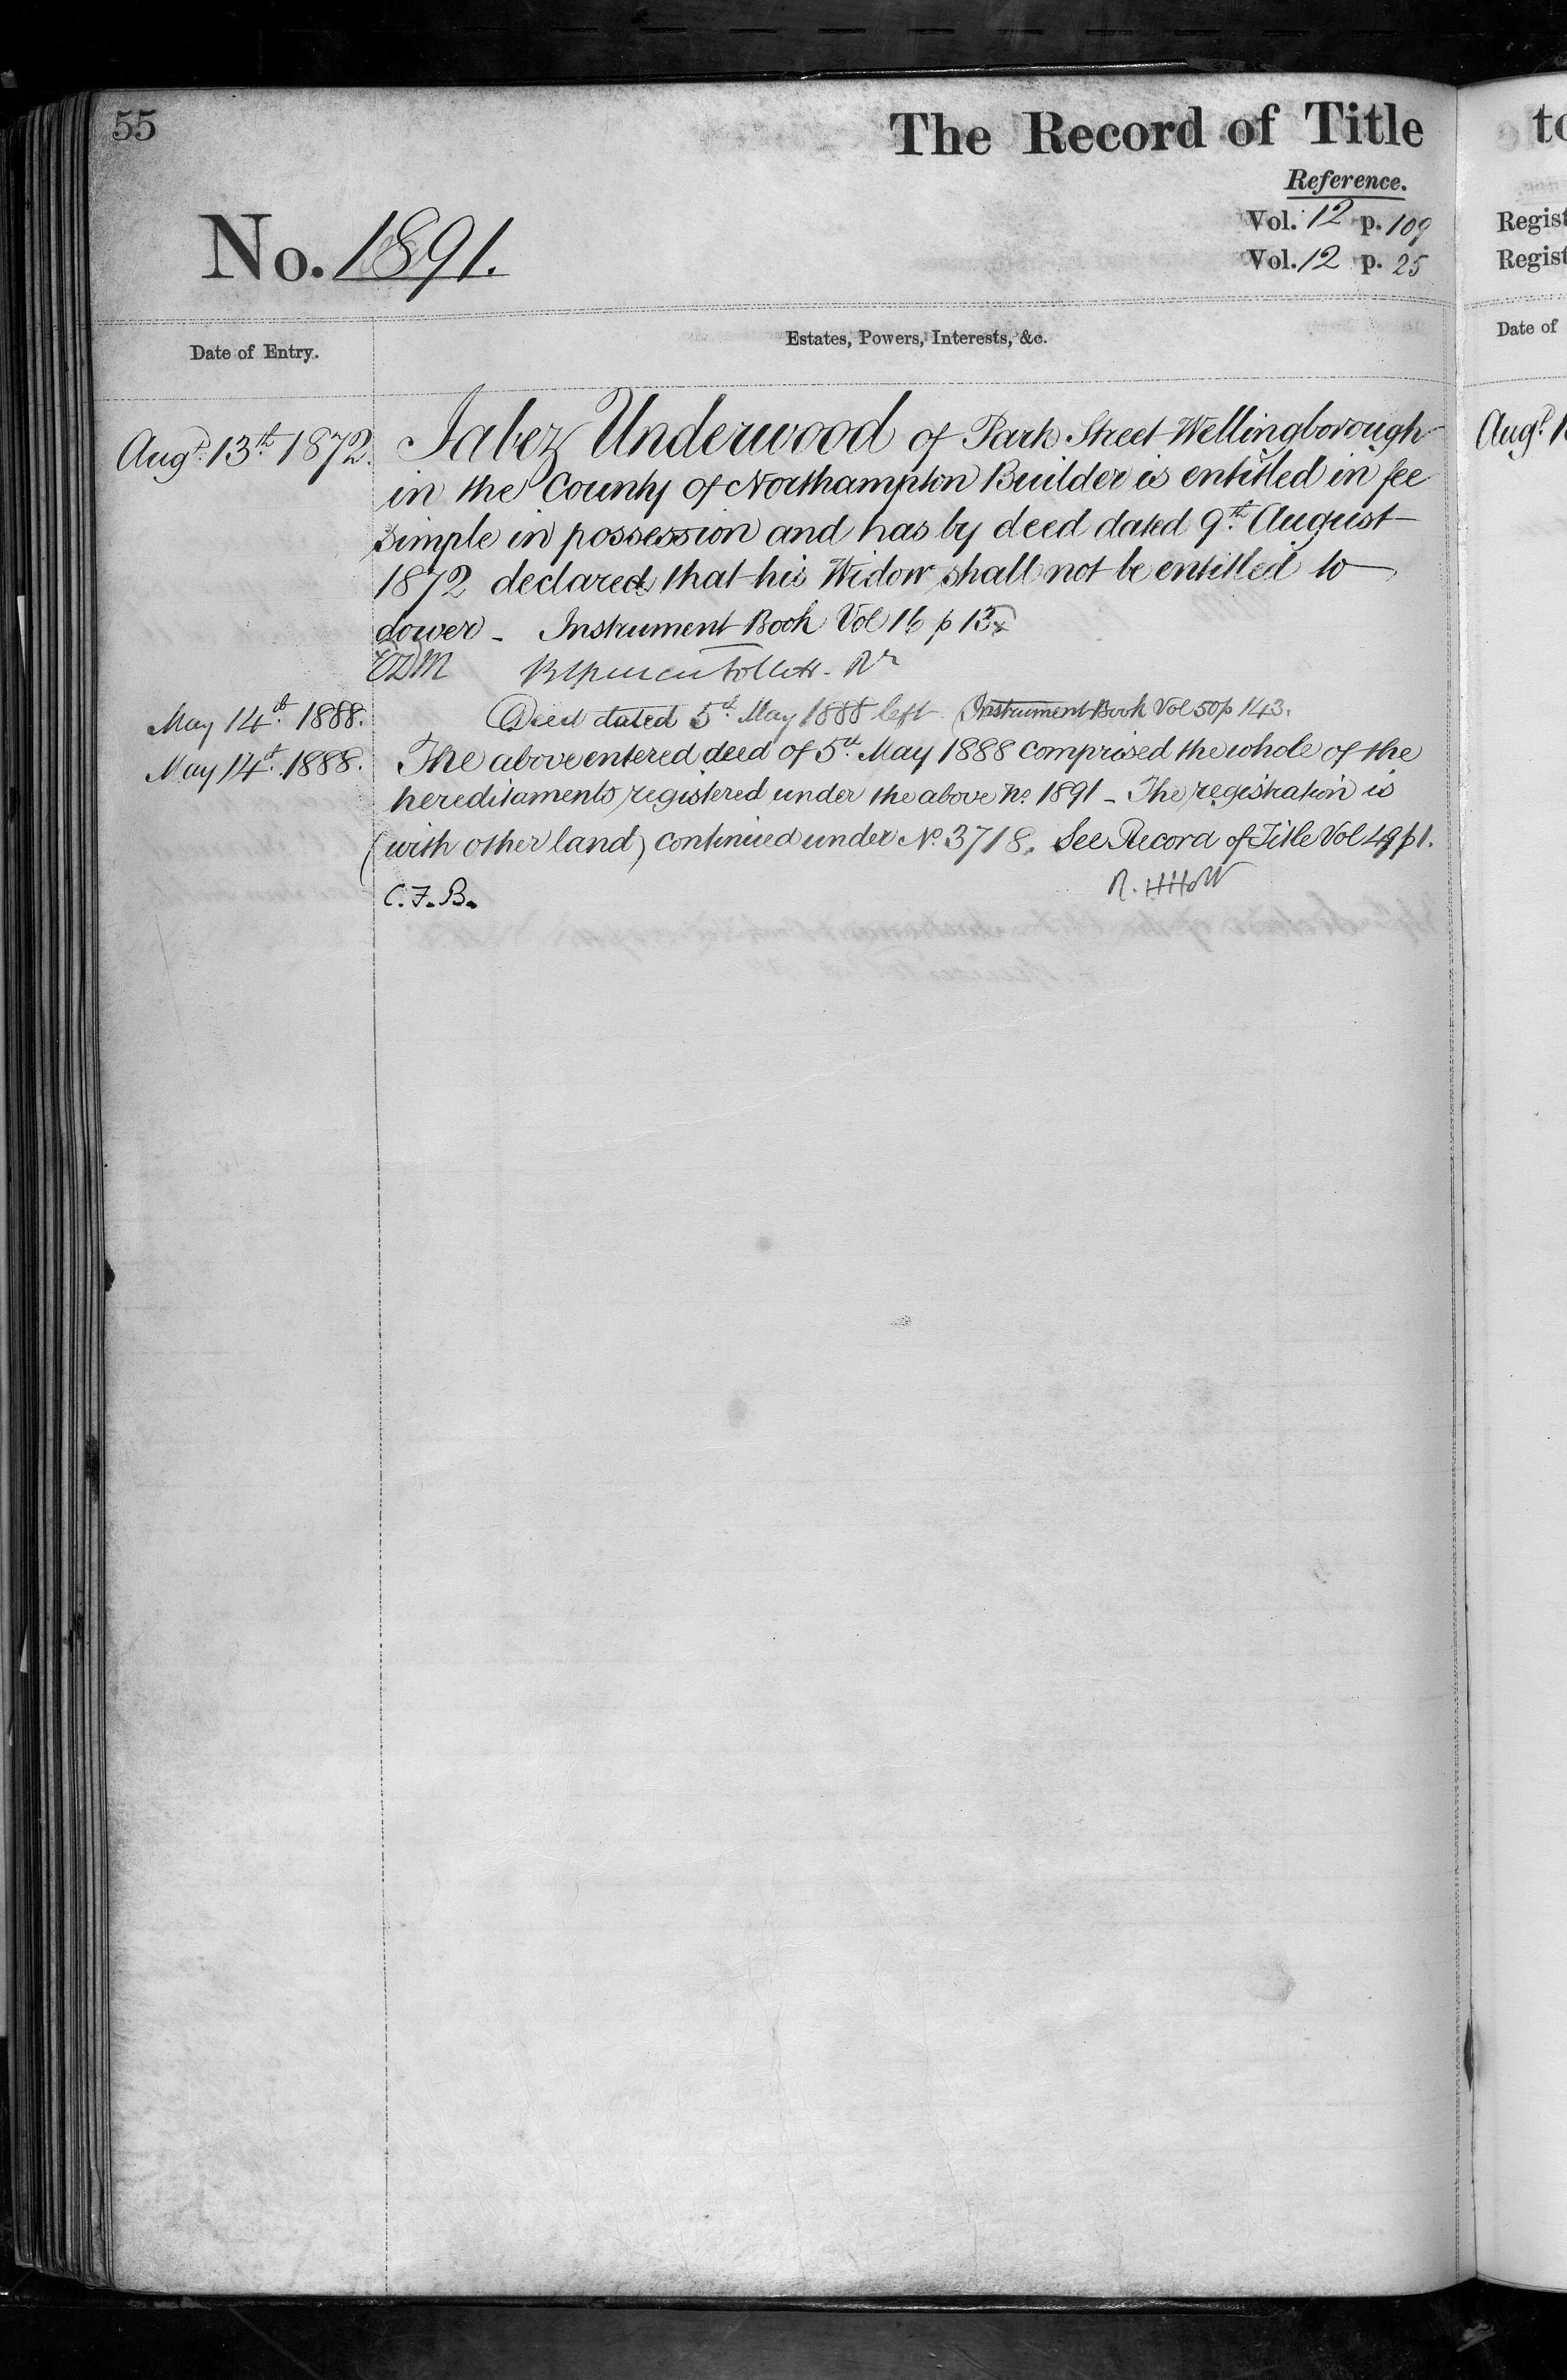 55
The Record of Title
Reference.
No. 1891.
Vol. 12 p. 109
Vol. 12 p. 25
Date of Entry.
Estates, Powers, Interests, &c.
Augt. 13th 1872. Jabez Underwood of Park Street Wellingborough
in the County of Northampton Builder is entitled in fee
simple in possession and has by deed dated 9th August
1872 declared that his Widow shall not be entitled to
dower - Instrument Book Vol 16 p
Follett. Rr
May 14th 1888. Deed dated 5th May 1888 left. Instrument Book Vol 50 p 143.
May 14th 1888. The above entered deed of 5th May 1888 comprised the whole of the
hereditaments registered under the above No. 1891 - The registration is
(with other land) continued under No. 3718. See Record of Title Vol 49 p 1.
C.F.B.
to
Regist
Regist
Date of
Augt. 1